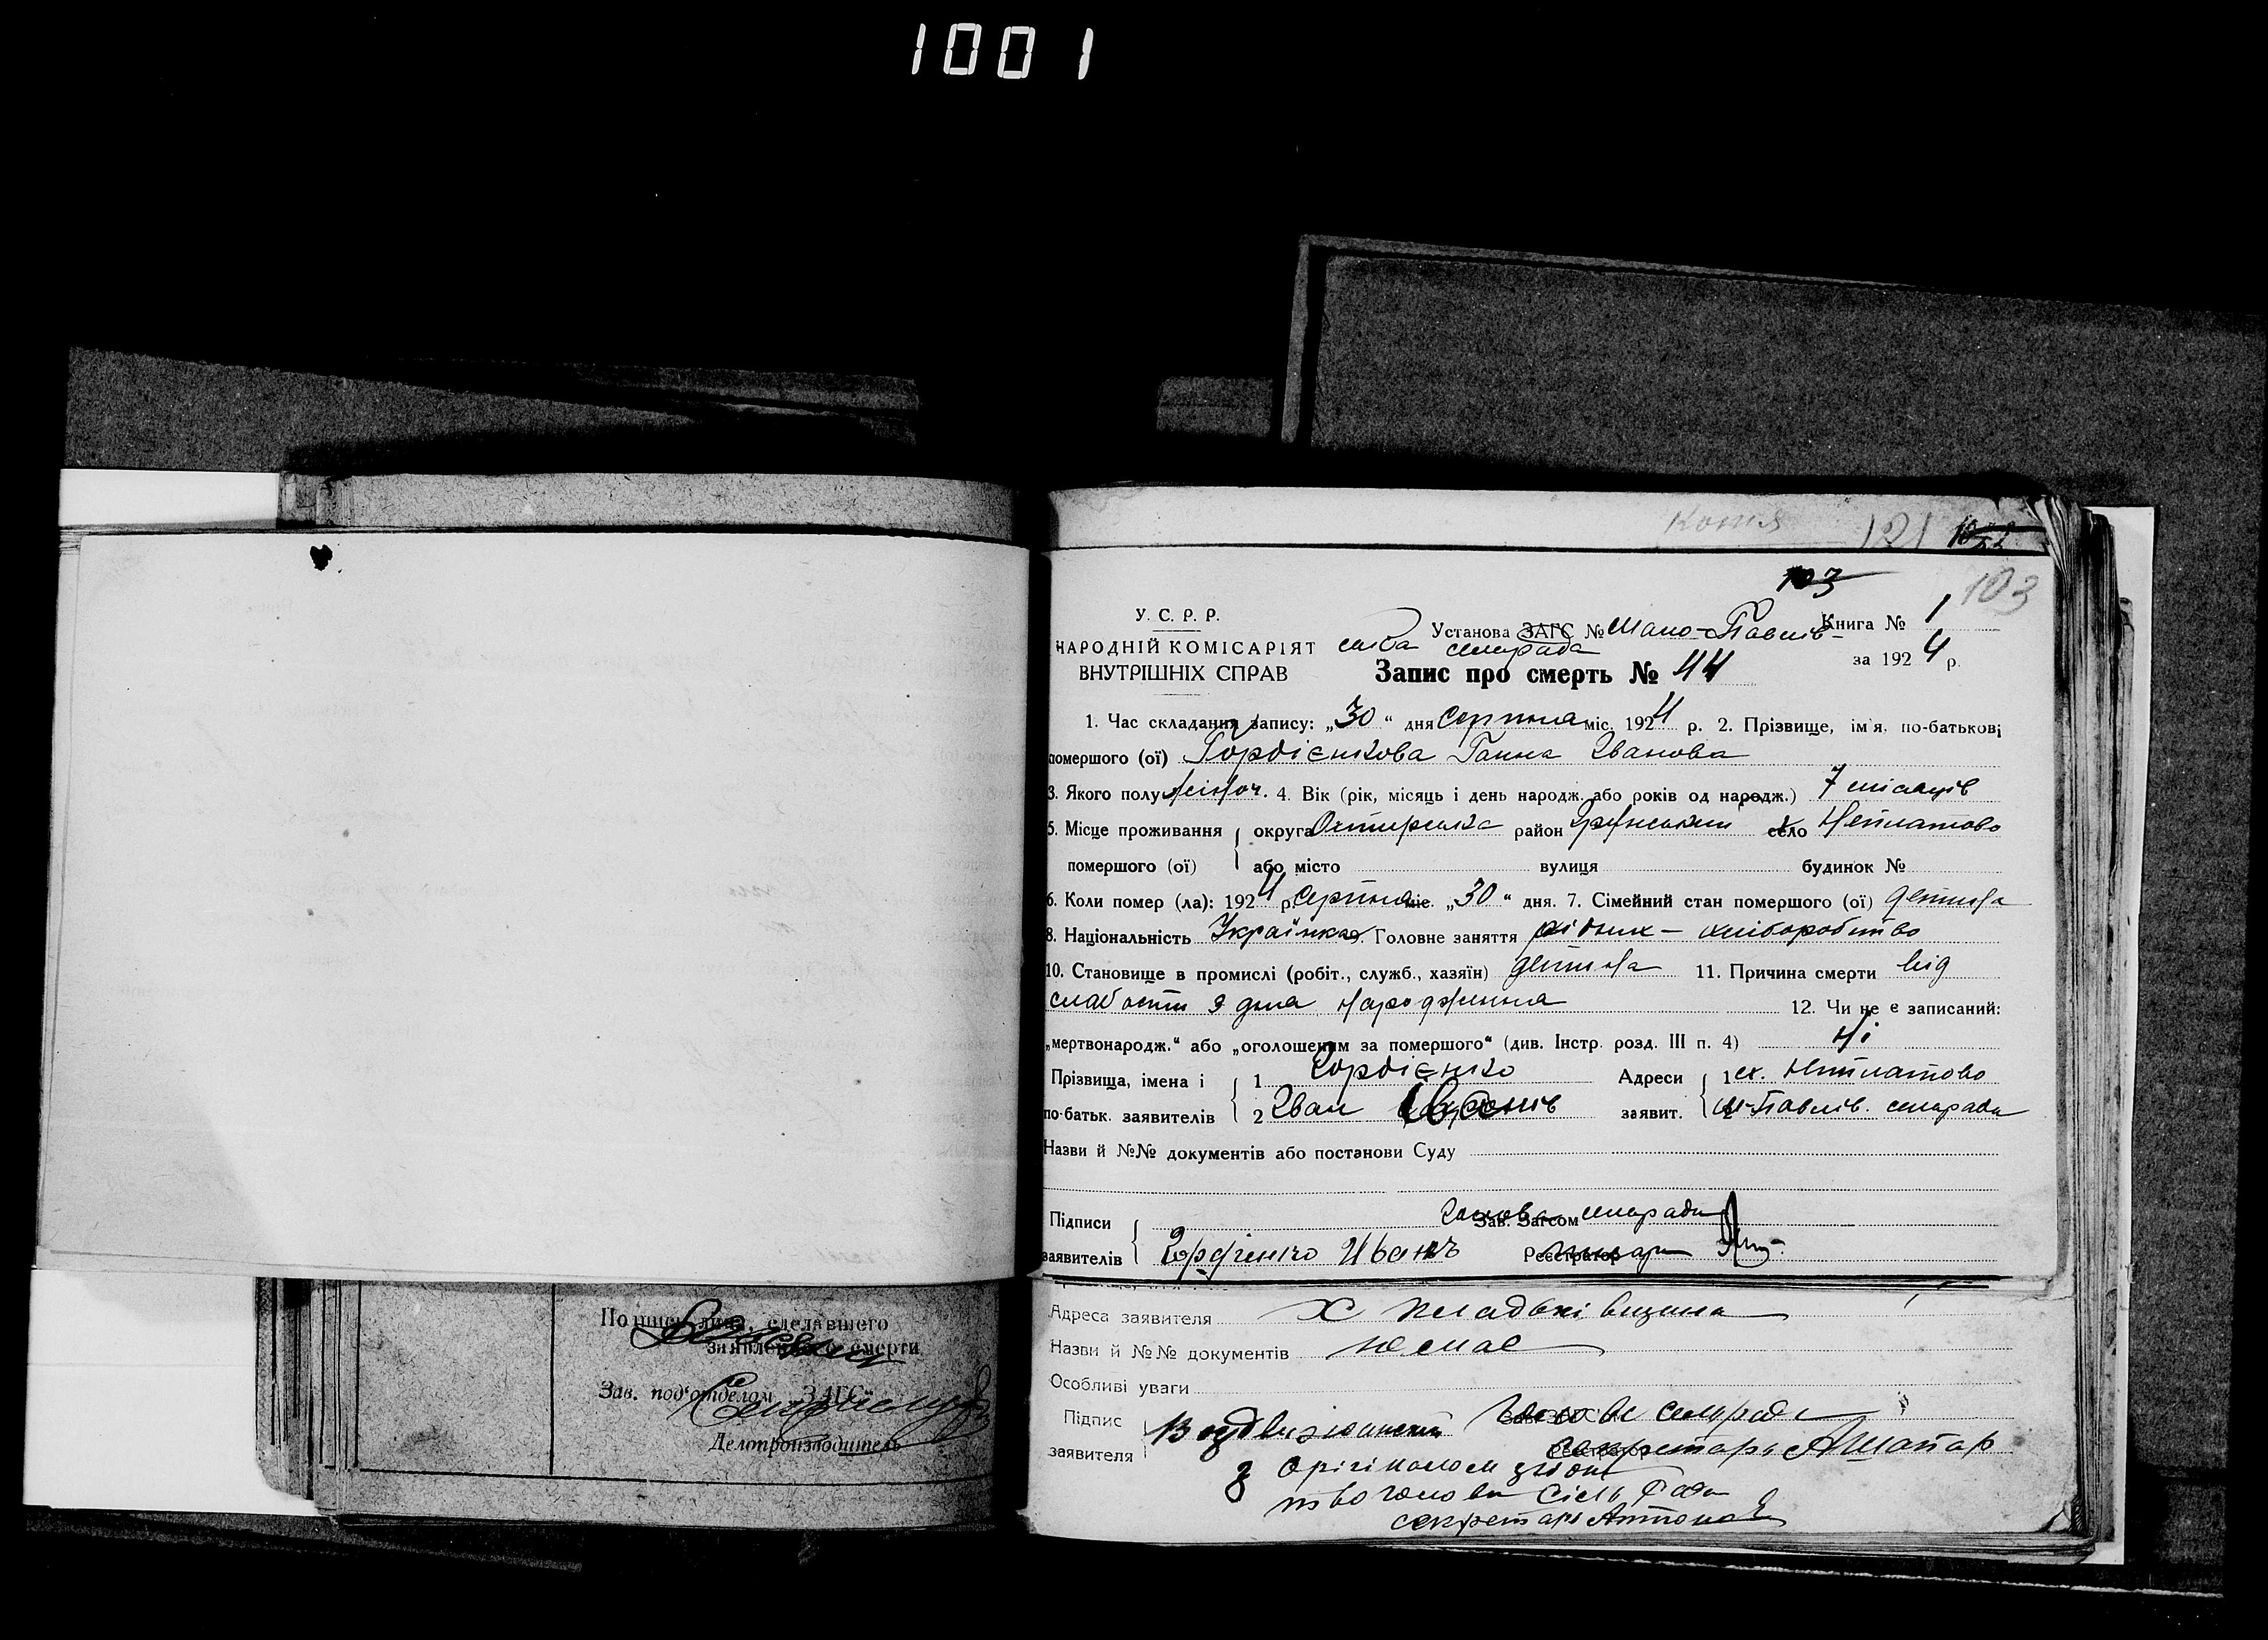 1001
Копія 121
103 103
У. С. Р. Р.
Установа ЗАГС № Мало-Павлів- Книга № 1
НАРОДНІЙ КОМІСАРІЯТ ська сільрада за 1924 р.
ВНУТРІШНІХ СПРАВ Запис про смерть № 44
1. Час складання запису: „30“ дня Серпня міс. 1924 р. 2. Прізвище, ім'я, по-батькові
помершого (ої) Гордієнкова Ганна Іванова
3. Якого полу жіноч. 4. Вік (рік, місяць і день народж. або років од народж.) 7 місяців
5. Місце проживання округа Охтирська район Грунський село Неплатово
помершого (ої) або місто вулиця будинок №
6. Коли помер (ла): 1924 р. Серпня міс. „30“ дня. 7. Сімейний стан помершого (ої) детина
8. Національність Українка 9. Головне заняття рідних - хліборобство
10. Становище в промислі (робіт., служб., хазяїн) детина 11. Причина смерти від
слабости з дня народження 12. Чи не є записаний:
„мертвонародж.“ або „оголошеним за помершого“ (див. Інстр. розд. III п. 4) Ні
Прізвища, імена і 1 Гордієнко Адреси 1 х. Неплатово
по-батьк. заявителів 2 Іван заявит. 2 М-Павлів. сільради
Назви й №№ документів або постанови Суду
Підписи Голова Зав. Загсом сільради
заявителів Гордіенко Иванъ Реєстратор
Адреса заявителя Х
Назви й №№ документів немає
Особливі уваги
Підпис Голова сільради
заявителя секретарь АШапар
З Орігіналом згідно
голови Сіль Ради
секретарь
Подпись лица, сделавшего
заявление о смерти
Зав. под'отделом ЗАГС
Делопроизводитель